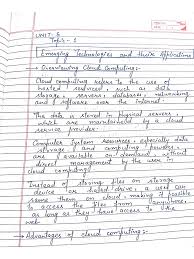 UNIT-5
Topic - 1
Emerging Technologies and their Applications
→ Overviewing Cloud Computing:-
Cloud computing refers to the use of
hosted services, such as data
storage, servers, databases, networking
and software over the internet.
The data is stored in Physical servers,
which are maintained by a cloud
service provider.
Computer system resources, especially data
storage and computing power,
are available on-demand, without
direct management by the user in
cloud computing.
Instead of storing files on storage
device or hard drive, a user can
save them on cloud, making it possible
to access the files from anywhere,
as long as they have access to the
web.
→ Advantages of cloud computing:-